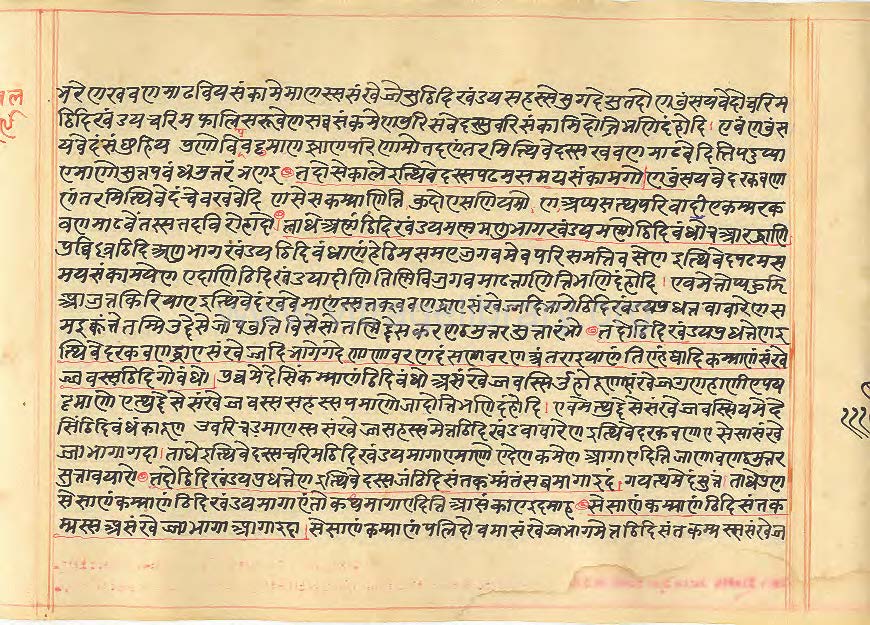 भरेणखवणमाढवियसंकामेमाणस्ससंखेज्जेसुठिदिखंडयसहस्सेसुगदेसुतदोणवुंसयवेदोचरिम
ठिदिखंडयचरिमफालिसरूवेणसव्वसंकमेणपुरिसवेदस्सुवरिसंकामिदोत्तिभणिदंहोदि। एवंणवुंस
यवेदंसंछुहियपुणोविवड्ढमाणझाणपरिणामोतदणंतरमित्थिवेदस्सखवणमाढवेदित्तिपदुप्पा
एमाणोसुत्तपबंधमुत्तरंभणइ। तदोसेकालेइत्थिवेदस्सपढमसमयसंकामगो। णवुंसयवेदक्खवणा
णंतरमित्थिवेदंचेवखवेदि ण सेसकम्माणित्ति कुदोएसणियमो। ण अप्पसत्थपरिवाडीएकम्मक्ख
वणमाढवेंतस्सतदविरोहादो। ताधेअण्णंठिदिखंडयमण्णमणुभागखंडयमण्णोठिदिबंधोचआरद्धाणि
पुव्विल्लठिदिअणुभागखंडयठिदिबंधाणंहेट्ठिमसमएजुगवमेवपरिसमत्तिवसेणइत्थिवेदपढमस
मयसंकामयेणएदाणिठिदिखंडयादीणितिण्णिविजुगवमाढत्ताणित्तिभणिदंहोदि। एवमेत्तोप्पहुडि
आउत्तकिरियाएइत्थिवेदंखवेमाणस्सतक्खवणद्धाएसंखेज्जदिभागेठिदिखंडयपुधत्तवावारेणस
मइक्कंतेतम्मिउद्देसेजोपउत्तिविसेसोतण्णिद्देसकरणट्ठमुत्तरसुत्तारंभो। तदोठिदिखंडयपुधत्तेणइ
त्थिवेदक्खवणद्धाएसंखेज्जदिभागेगदेणाणावरणदंसणावरणअंतराइयाणंतिण्हंघादिकम्माणंसंखे
ज्जवस्सठिदिगोबंधो। पुव्वमेदेसिंकम्माणंठिदिबंधो असंखेज्जवस्सिओहोंतो
ट्टमाणो एत्थुद्देसेसंखेज्जवस्ससहस्सपमाणोजादोत्तिभणिदंहोदि। एवमेत्थुद्देसेसंखेज्जवस्सियमेदे
सिंठिदिबंधंकादूण उवरिचडमाणस्ससंखेज्जसहस्समेत्तठिदिखंडयवावारेणइत्थिवेदक्खवणाएसेसासंखे
ज्जाभागागदा। ताधेइत्थिवेदस्सचरिमठिदिखंडयमागाएमाणोएदेणकमेणआगाएदित्तिजाणावणट्ठमुत्तर
सुत्तावयारो। तदोठिदिखंडयपुधत्तेणइत्थिवेदस्सजंठिदिसंतकम्मंतंसव्वमागाइदं। गयत्थमेदंसुत्तं। ताधेपुण
सेसाणंकम्माणंठिदिखंडयमागाएंतोकधमागाएदित्तिआसंकाएइदमाह। सेसाणंकम्माणंठिदिसंतक
म्मस्सअसंखेज्जाभागाआगाइदा। सेसाणंकम्माणंपलिदोवमासंखेज्जभागमेत्तठिदिसंतकम्मस्ससंखेज्ज